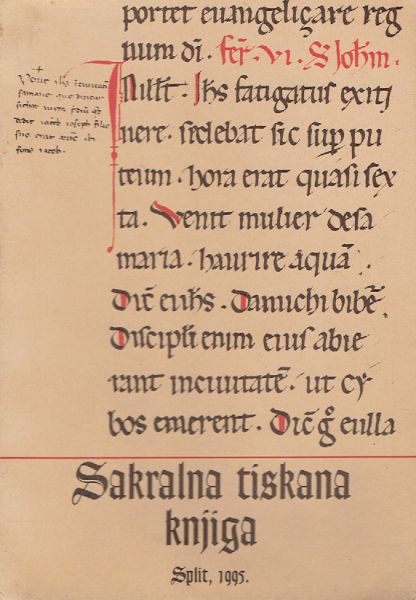 portet euangeliçare reg
num dī. fer̄. vi. S Joħm.
In illt̄. Jħs fatigatus exitj
nere. sedebat sic sup̱ pu
teum. hora erat quasi sex
ta. Venit mulier desa
maria. haurire aquā.
Dic̄ ei iħs. Damichi bibē.
Discipli enim eius abie
rant inciuitatē. ut cy
bos emerent. Dic̄ g̊ ei illa
+
Venit
samarie que dicitur
sichar iuxta
dedit iacob ioseph filio
suo erat ibi
fons iacob.
Sakralna tiskana
knjiga
Split, 1995.